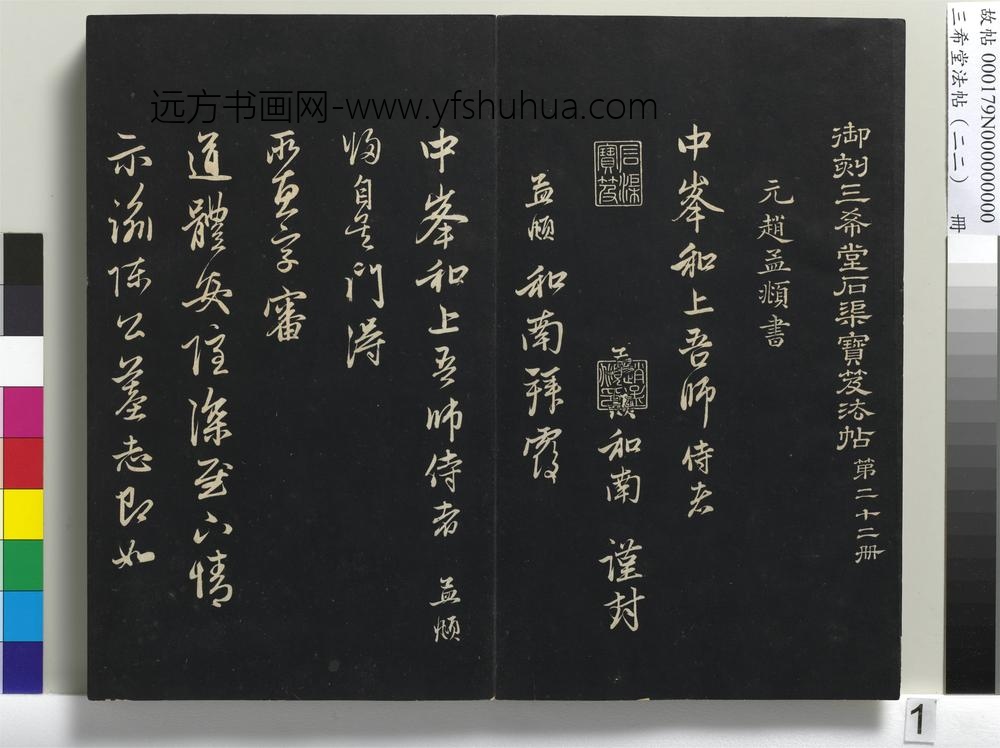 御刻三希堂石渠寶笈法帖 第二十二册
元趙孟頫書
中峯和上吾師侍者
和南 謹封
石渠寶笈
孟頫和南拜覆
中峯和上吾師侍者 孟頫
歸自吴門得
所惠字審
道體安隱深慰下情
示諭陳公墓志即如
远方书画网-www.yfshuhua.com
故帖 000179N000000000
三希堂法帖(二二) 冊
1